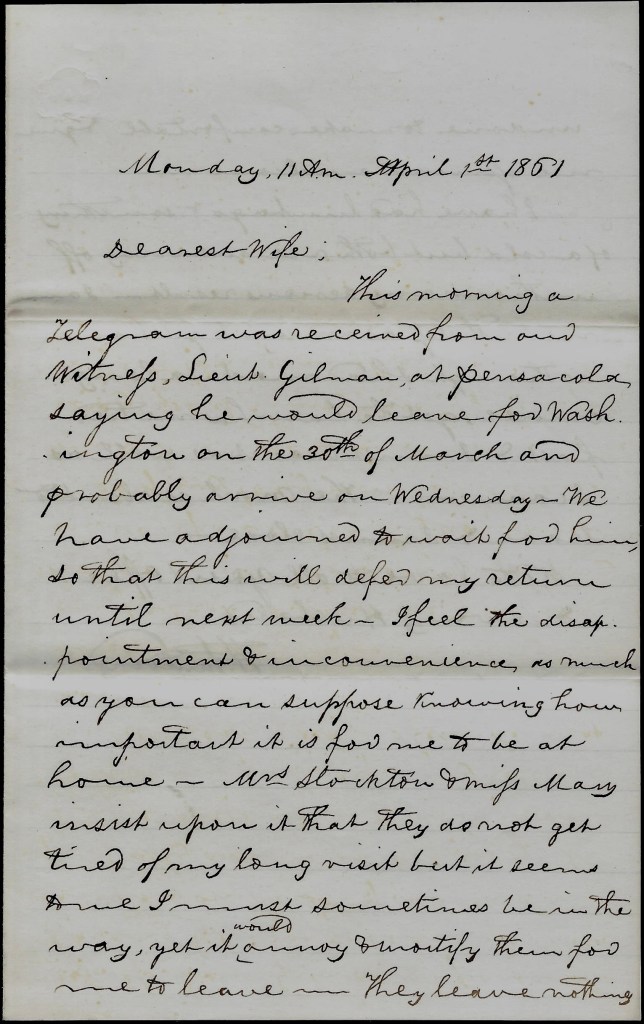 Monday, 11 Am. April 1st 1861
Dearest Wife;
This morning a
Telegram was received from our
Witness, Lieut. Gilman, at Pensacola,
saying he would leave for Wash.
.ington on the 30th of March and
probably arrive on Wednesday – We
have adjourned to wait for him,
so that this will defer my return
until next week – I feel the disap.
.pointment & inconvenience, as much
as you can suppose knowing how
important it is for me to be at
home – Mrs Stockton & Miss Mary
insist upon it that they do not get
tired of my long visit but it seems
to me I must sometimes be in the
way, yet it would annoy & mortify them for
me to leave – They leave nothing